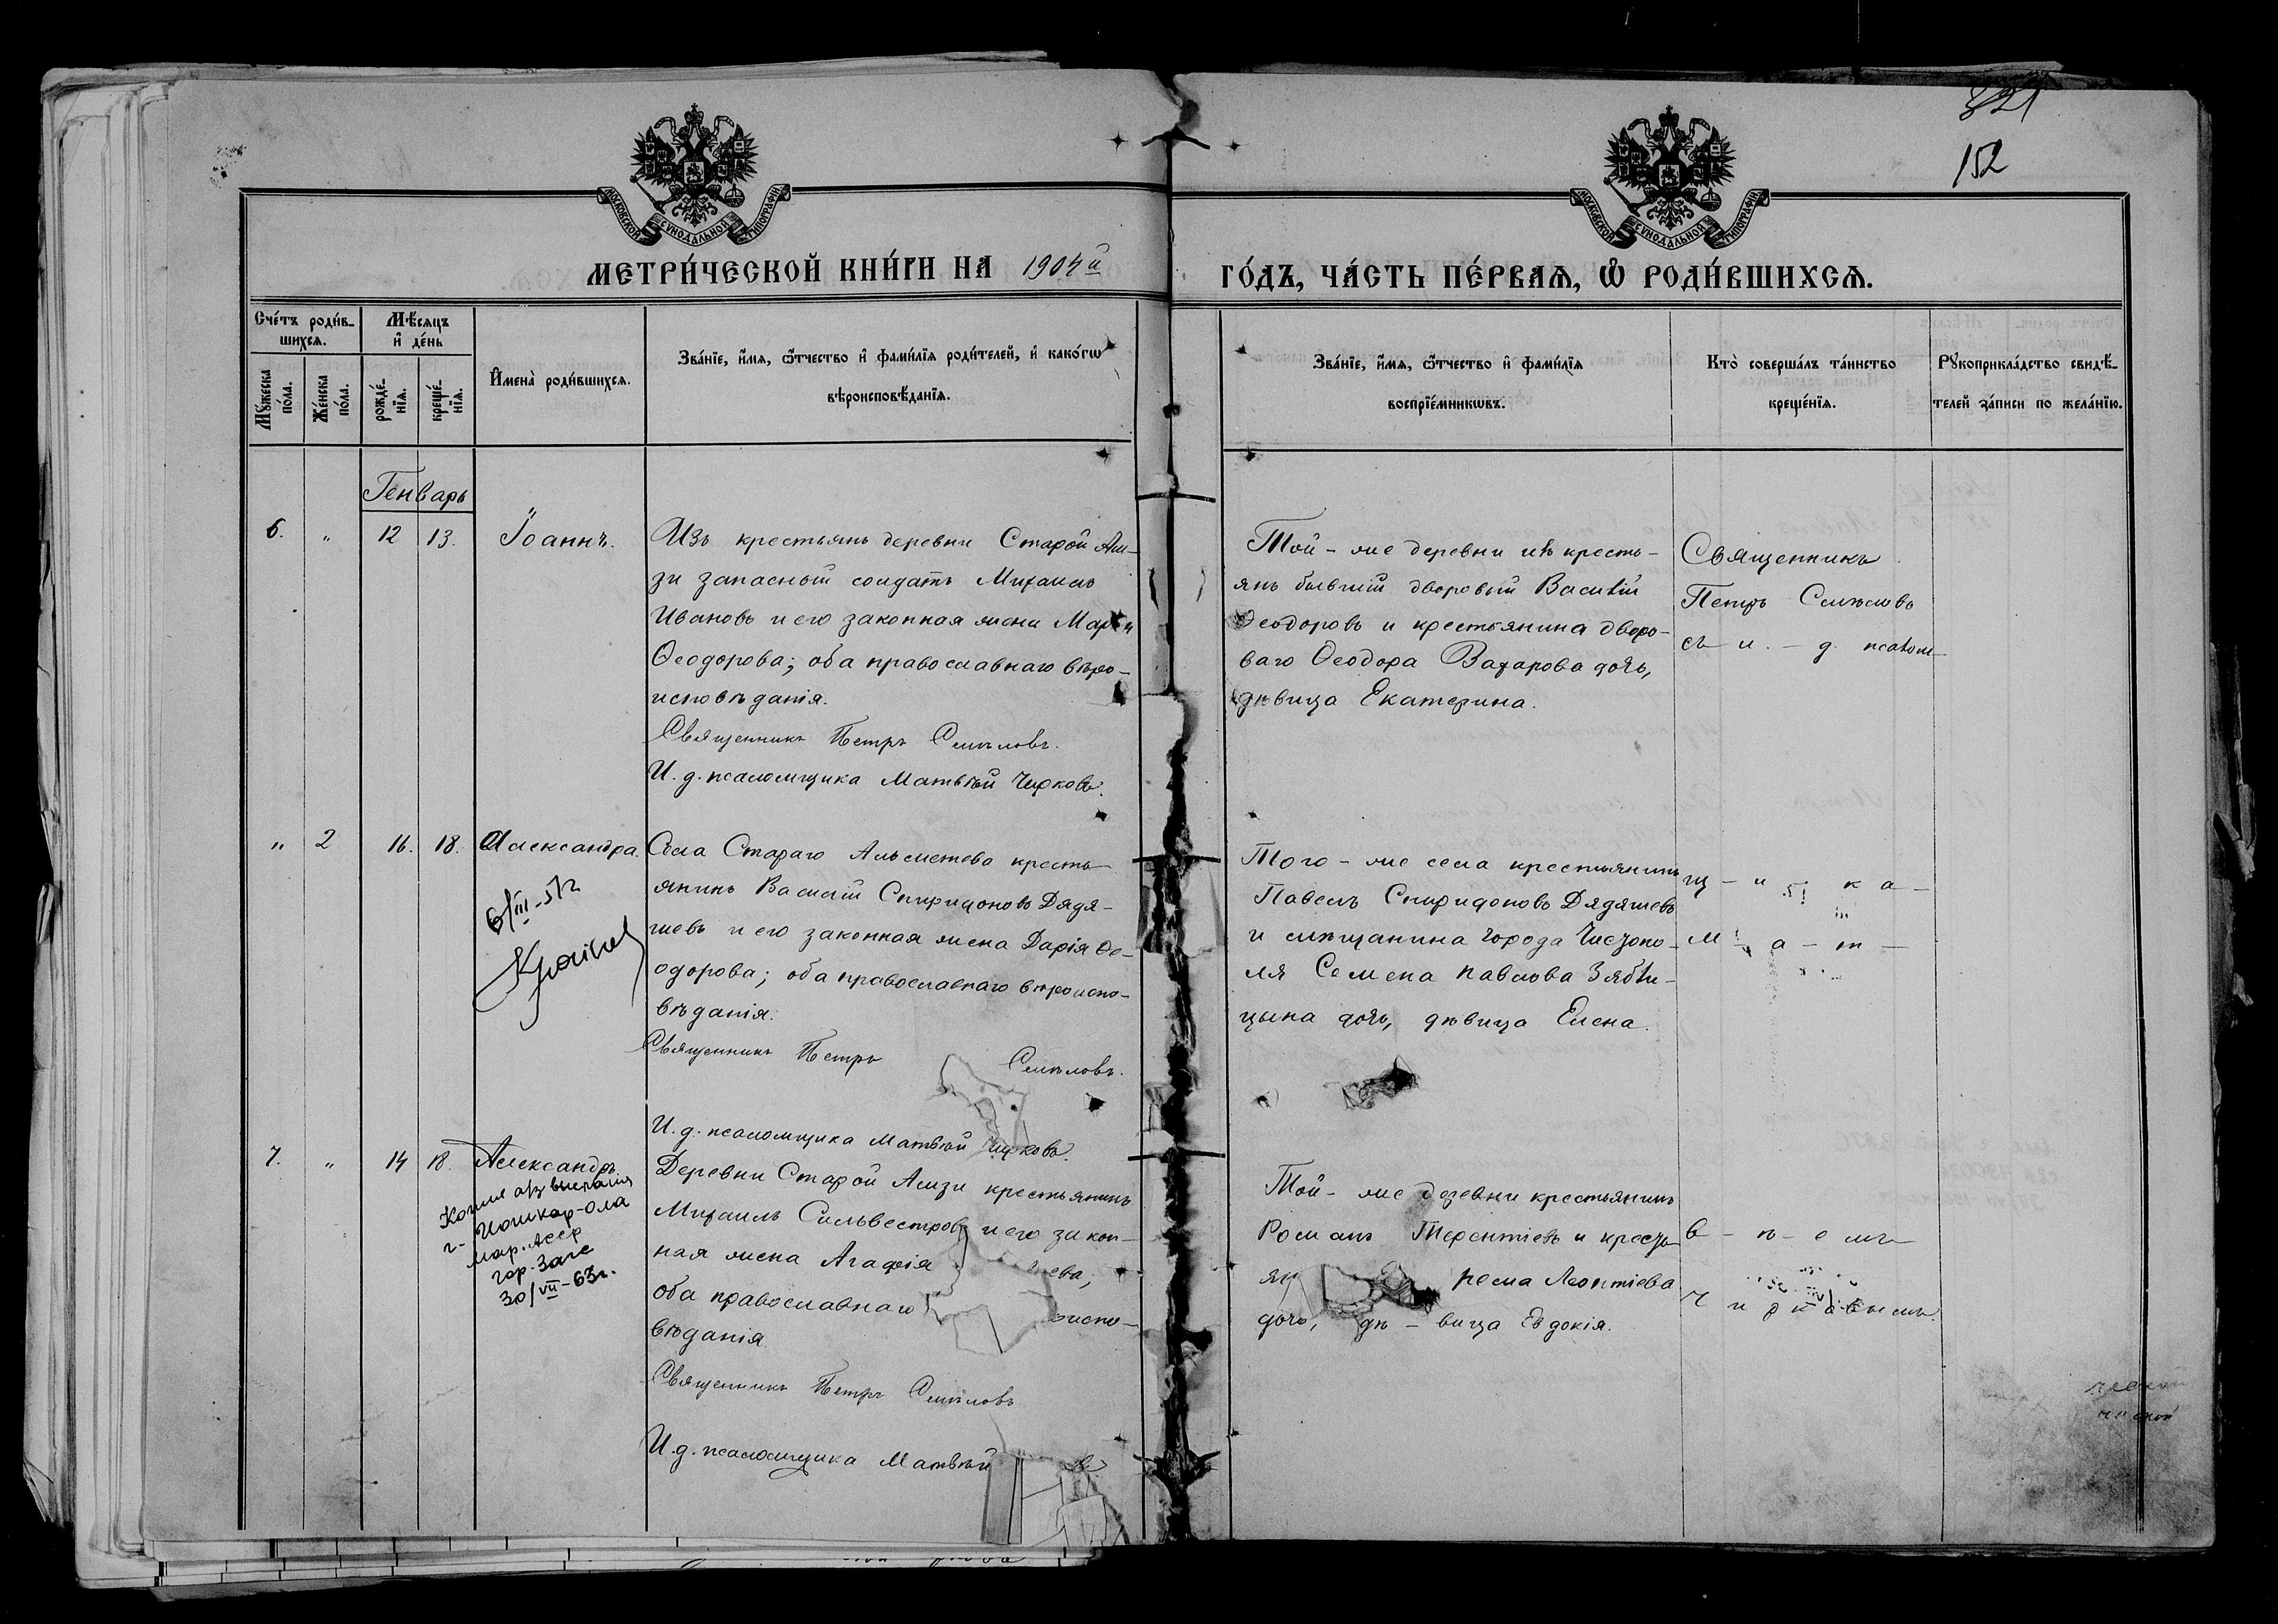 321
152
МОСКОВСКОЙ СУНОДАЛЬНОЙ ТИПОГРАФІИ
МОСКОВСКОЙ СУНОДАЛЬНОЙ ТИПОГРАФІИ
МЕТРИ́ЧЕСКОЙ КНИ́ГИ НА 1904й
ГО́ДЪ, ЧА́СТЬ ПЕ́РВАѦ, Ѡ РОДИ́ВШИХСѦ.
Сче́тъ роди́вшихсѧ.
Мꙋ́жеска по́ла.
Же́нска по́ла.
Мѣ́сѧцъ и де́нь
рожде́нїѧ.
креще́нїѧ.
Имена̀ роди́вшихсѧ.
Зва́нїе, и́мѧ, ѻ́тчество и фами́лїѧ роди́телей, и како́гѡ
вѣроисповѣ́данїѧ.
Зва́нїе, и́мѧ, ѻ́тчество и фами́лїѧ
воспрїе́мникѡвъ.
Кто̀ соверша́лъ та́инство
креще́нїѧ.
Рꙋкоприкла́дство свидѣ́-
телей за́писи по жела́нїю.
Генварь
6. " 12 13. Іоаннъ.
Изъ крестьянъ деревни Старой Ам-
зи запасный солдатъ Михаилъ
Ивановъ и его законная жена Марія
Ѳеодорова; оба православнаго вѣро-
исповѣданія.
Священникъ Петръ Смѣловъ.
И. д. псаломщика Матвѣй Чирковъ.
Той-же деревни изъ кресть-
янъ бывшій дворовый Василій
Ѳеодоровъ и крестьянина дворо-
ваго Ѳеодора Захарова дочь,
дѣвица Екатерина.
Священникъ
Петръ Смѣловъ
съ и. - д. псалом-
" 2 16. 18. Александра.
6/III-57г
Села Стараго Альметево кресть-
янинъ Василій Спиридоновъ Дядя-
шевъ и его законная жена Дарія Ѳе-
одорова; оба православнаго вѣроиспо-
вѣданія.
Священникъ Петръ Смѣловъ.
И. д. псаломщика Матвѣй Чирковъ.
Того-же села крестьянинъ
Павелъ Спиридоновъ Дядяшевъ
и мѣщанина города Чистопо-
ля Семена Павлова Зябли-
цына дочь, дѣвица Елена.
щ - и - к а -
М - а - т -
7. " 14 18. Александръ.
Копия
г. Йошкар-Ола
Мар. АССР
гор. Загс
30/VII-63г.
Деревни Старой Амзи крестьянинъ
Михаилъ Сильвестровъ и его закон-
ная жена Агафія
оба православнаго
вѣданія
Священникъ Петръ Смѣловъ
И. д. псаломщика Матвѣй
Той-же деревни крестьянинъ
Романъ Терентіевъ и кресть-
ян рема Леонтіева
дочь, дѣ - вица Евдокія.
в - ѣ - е мъ
Ч и р к о в ы мъ.